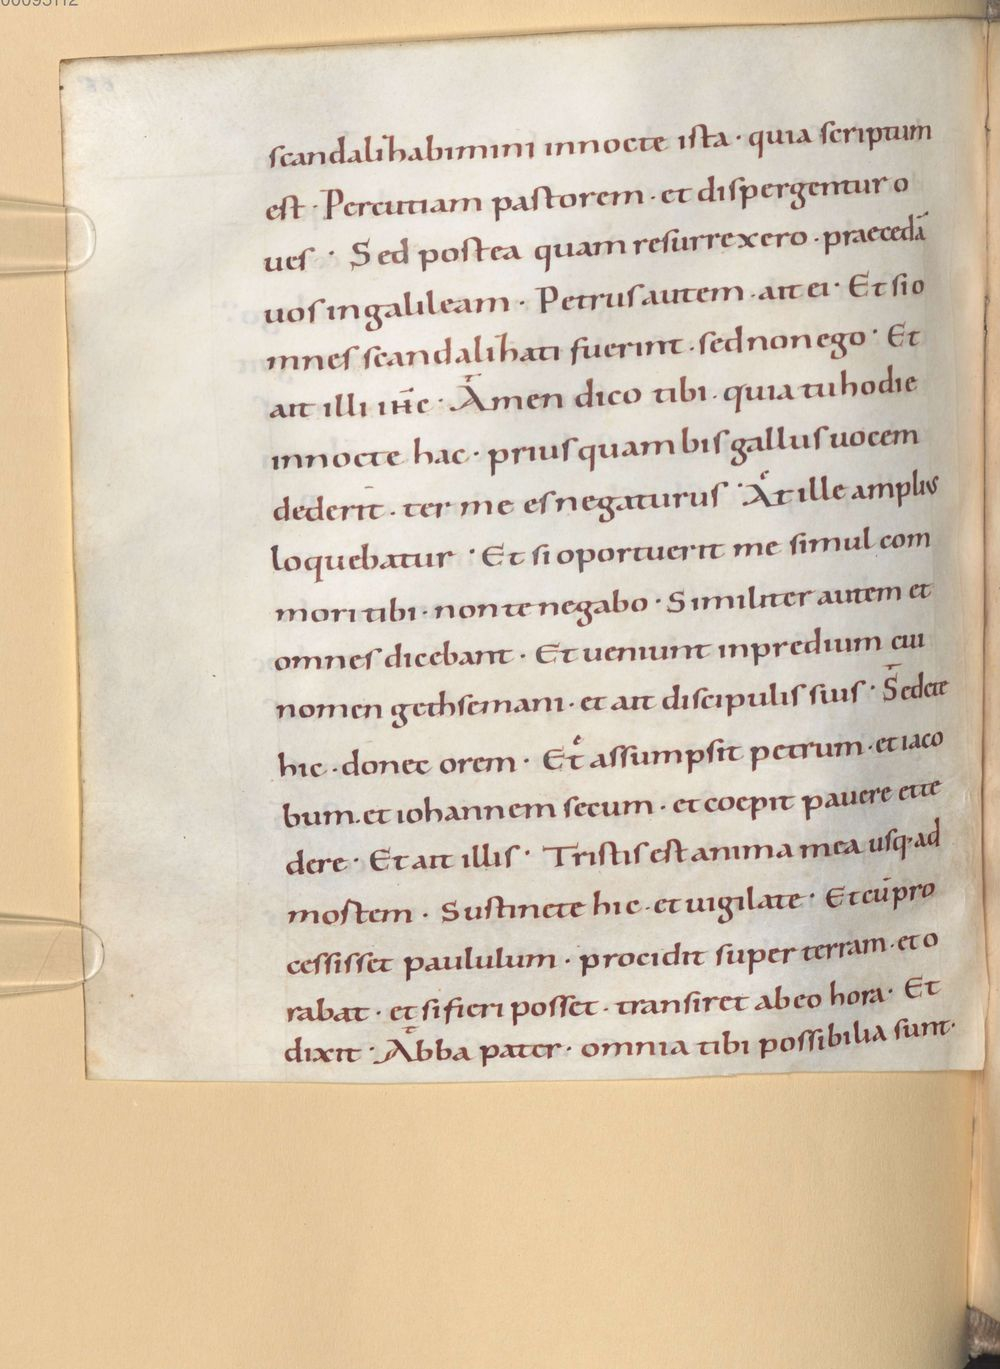 scandalizabimini innocte ista · quia scriptum
est · Percutiam pastorem · et dispergentur o
ues · Sed postea quam resurrexero · praecedā
uos in galileam · Petrus autem · ait ei · Et si o
mnes scandalizati fuerint · sed non ego · Et
ait illi ih̄c · Amen dico tibi · quia tu hodie
innocte hac · prius quam bis gallus uocem
dederit · ter me es negaturus · At ille amplius
loquebatur · Et si oportuerit me simul com
mori tibi · non te negabo · Similiter autem et
omnes dicebant · Et ueniunt inpredium cui
nomen gethsemani · et ait discipulis suis · Sedete
hic · donec orem · Et assumpsit petrum · et iaco
bum · et iohannem secum · et coepit pauere ette
dere · Et ait illis · Tristis est anima mea usq· ad
mostem · Sustinete hic · et uigilate · Et cū pro
cessisset paululum · procidit super terram · et o
rabat · et si fieri posset · transiret ab eo hora · Et
dixit · Abba pater · omnia tibi possibilia sunt ·